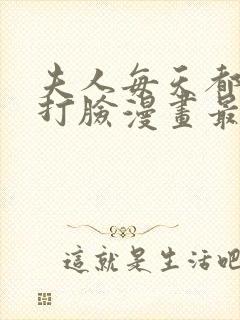 夫人每天都
打臉漫畫最
這就是生活吧